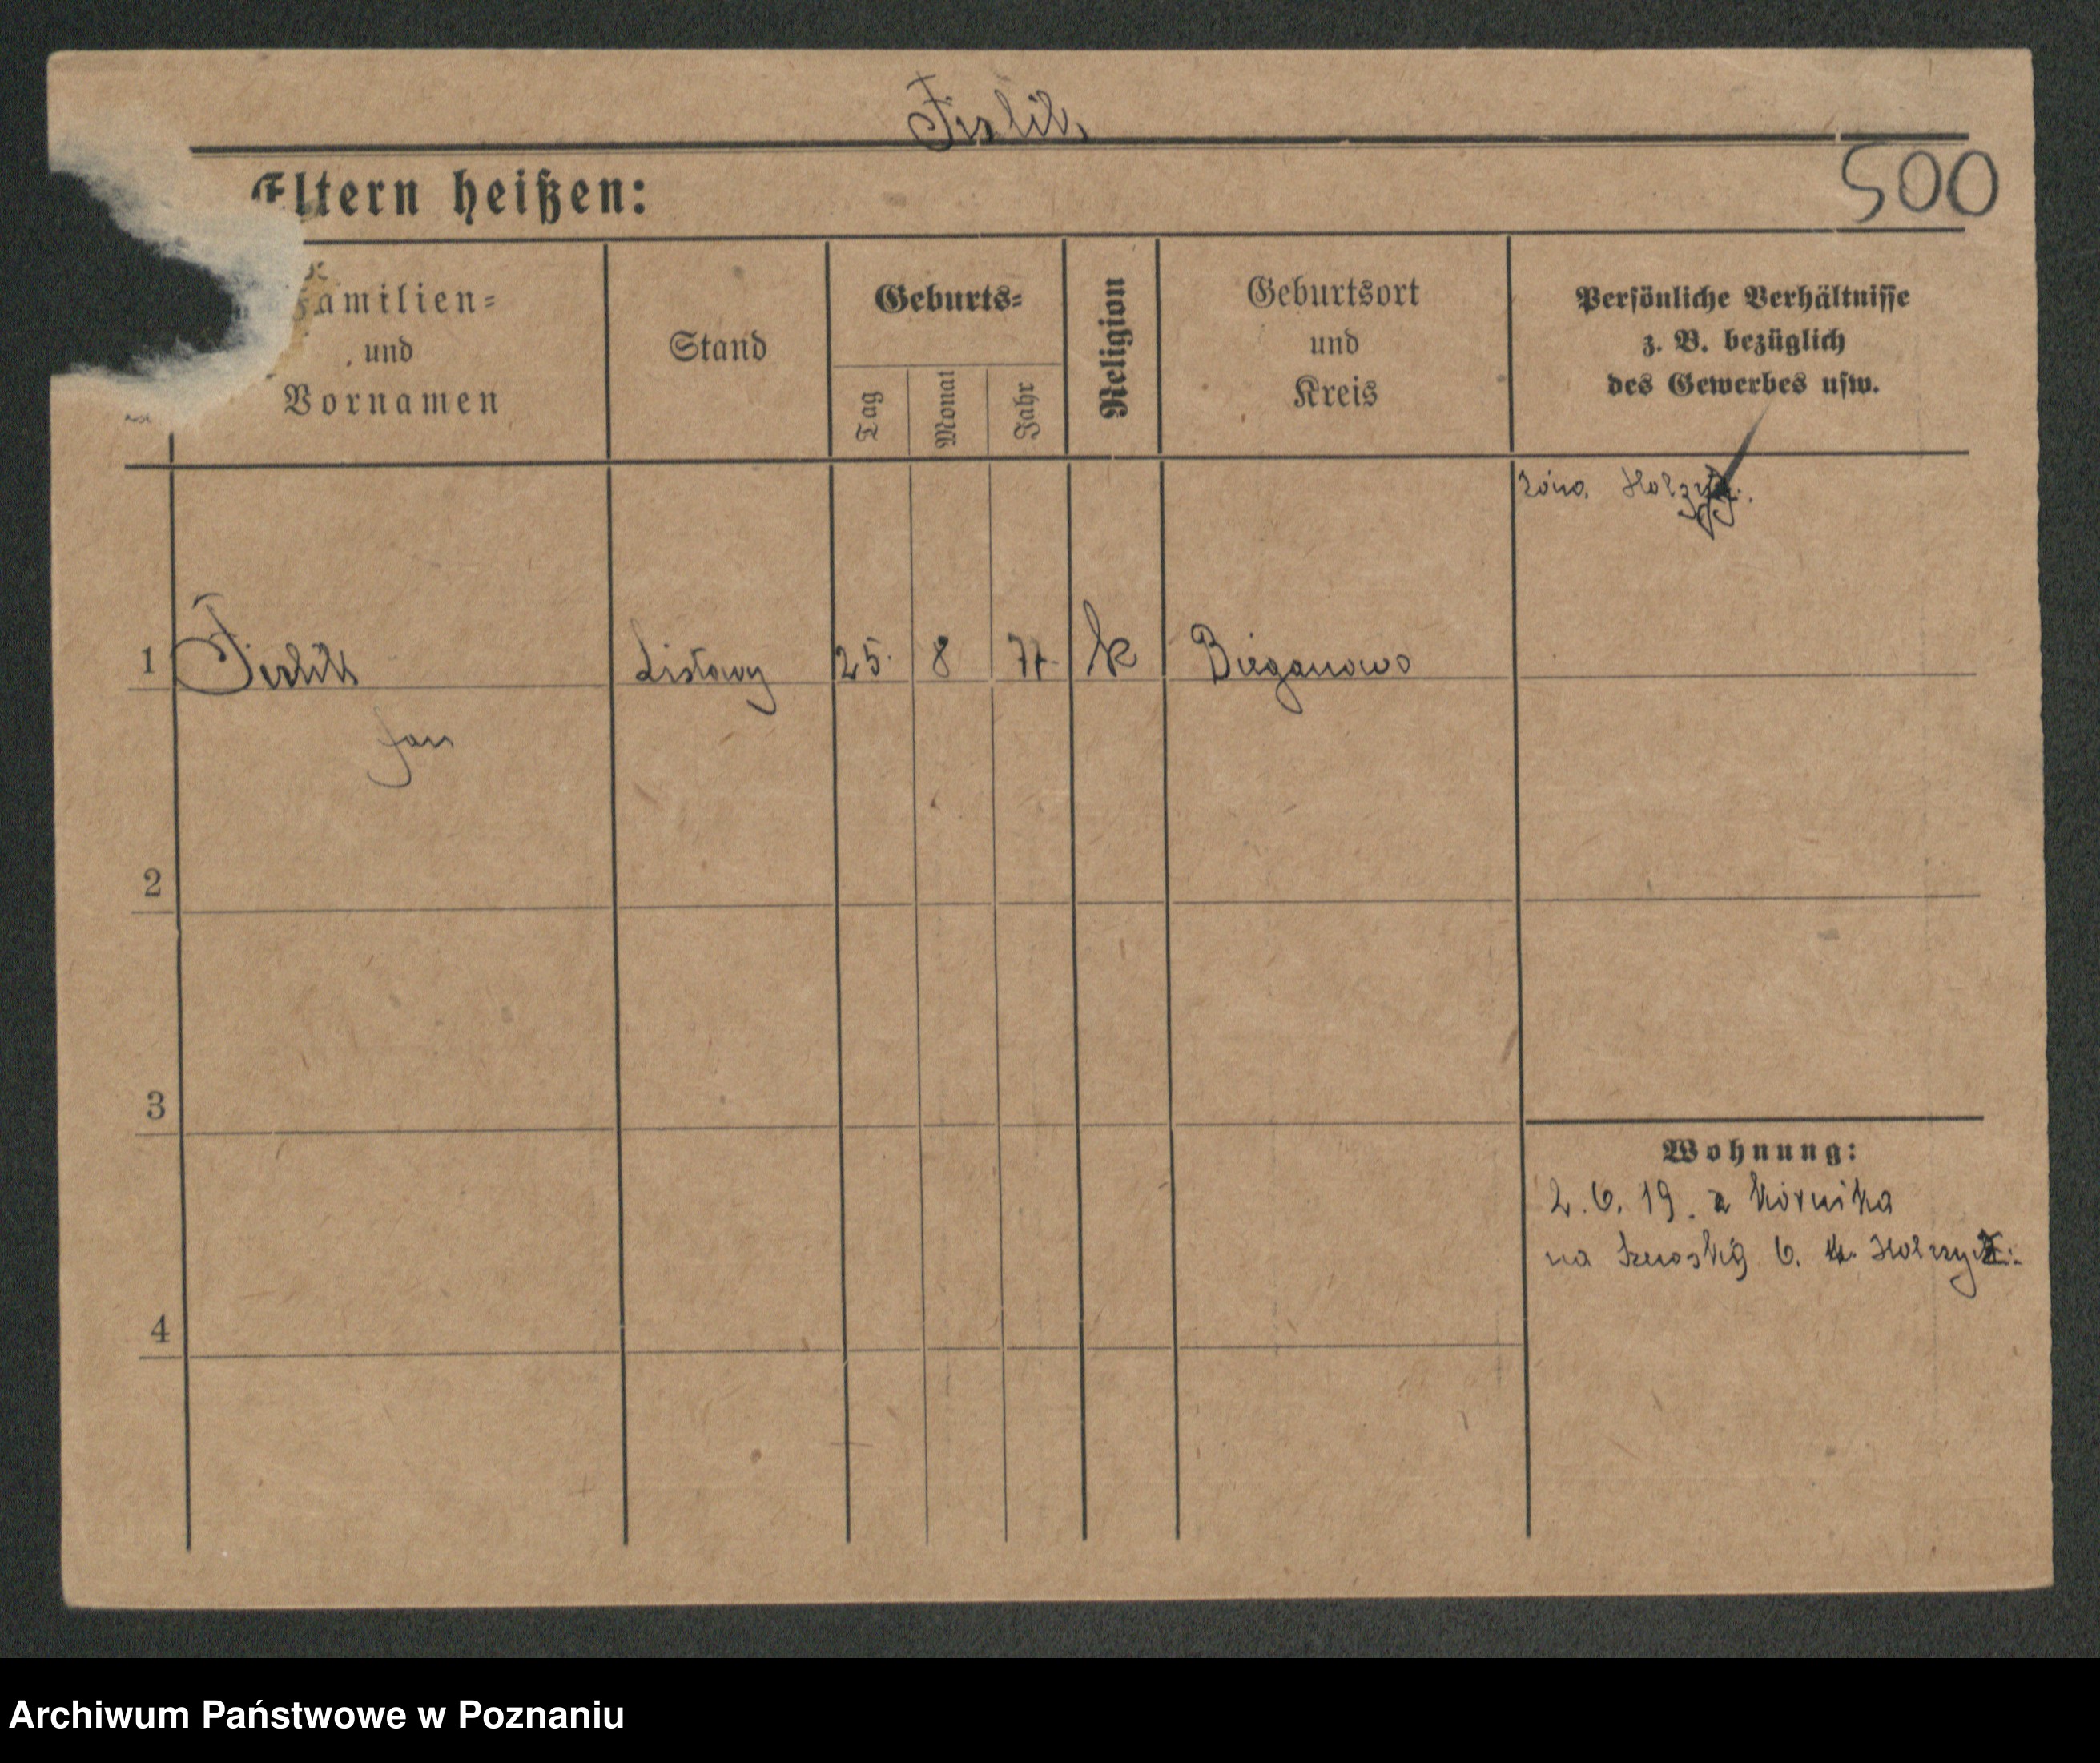 Firlik
Eltern heißen:
500
Familien=
und
Vornamen
Stand
Geburts=
Tag
Monat
Jahr
Religion
Geburtsort
und
Kreis
Persönliche Verhältnisse
z. B. bezüglich
des Gewerbes usw.
żona
1
Firlik
Listowy
25.
8
77.
k
Bieganowo
Jan
2
3
4
Wohnung:
2.6.19. z Kórnika
na 6.
Archiwum Państwowe w Poznaniu